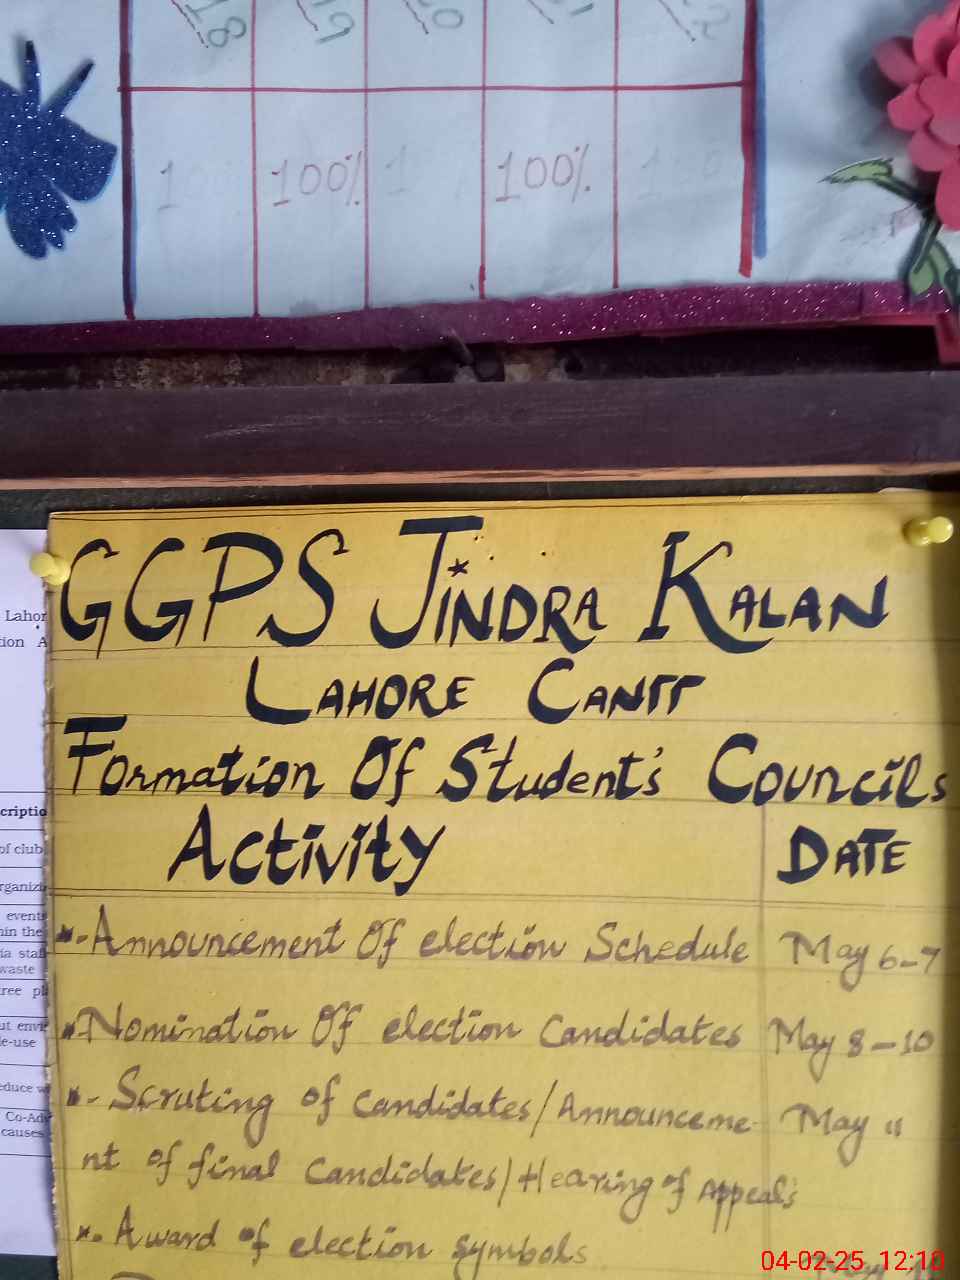 18 19 20 21 22
1 100% 1 100% 100
GGPS JINDRA KALAN
LAHORE CANTT
Formation Of Student's Councils
Activity DATE
Announcement Of election Schedule May 6-7
Nomination Of election Candidates May 8-10
Scruting of Candidates/Announceme- May 11
nt of final Candidates/Hearing of Appeal's
Award of election symbols
Lahor
tion A
criptio
of club
rganizi
events
hin the
ia staff
waste
ree pl
ut envi
e-use
educe w
Co-Ad
causes
04-02-25 12:10